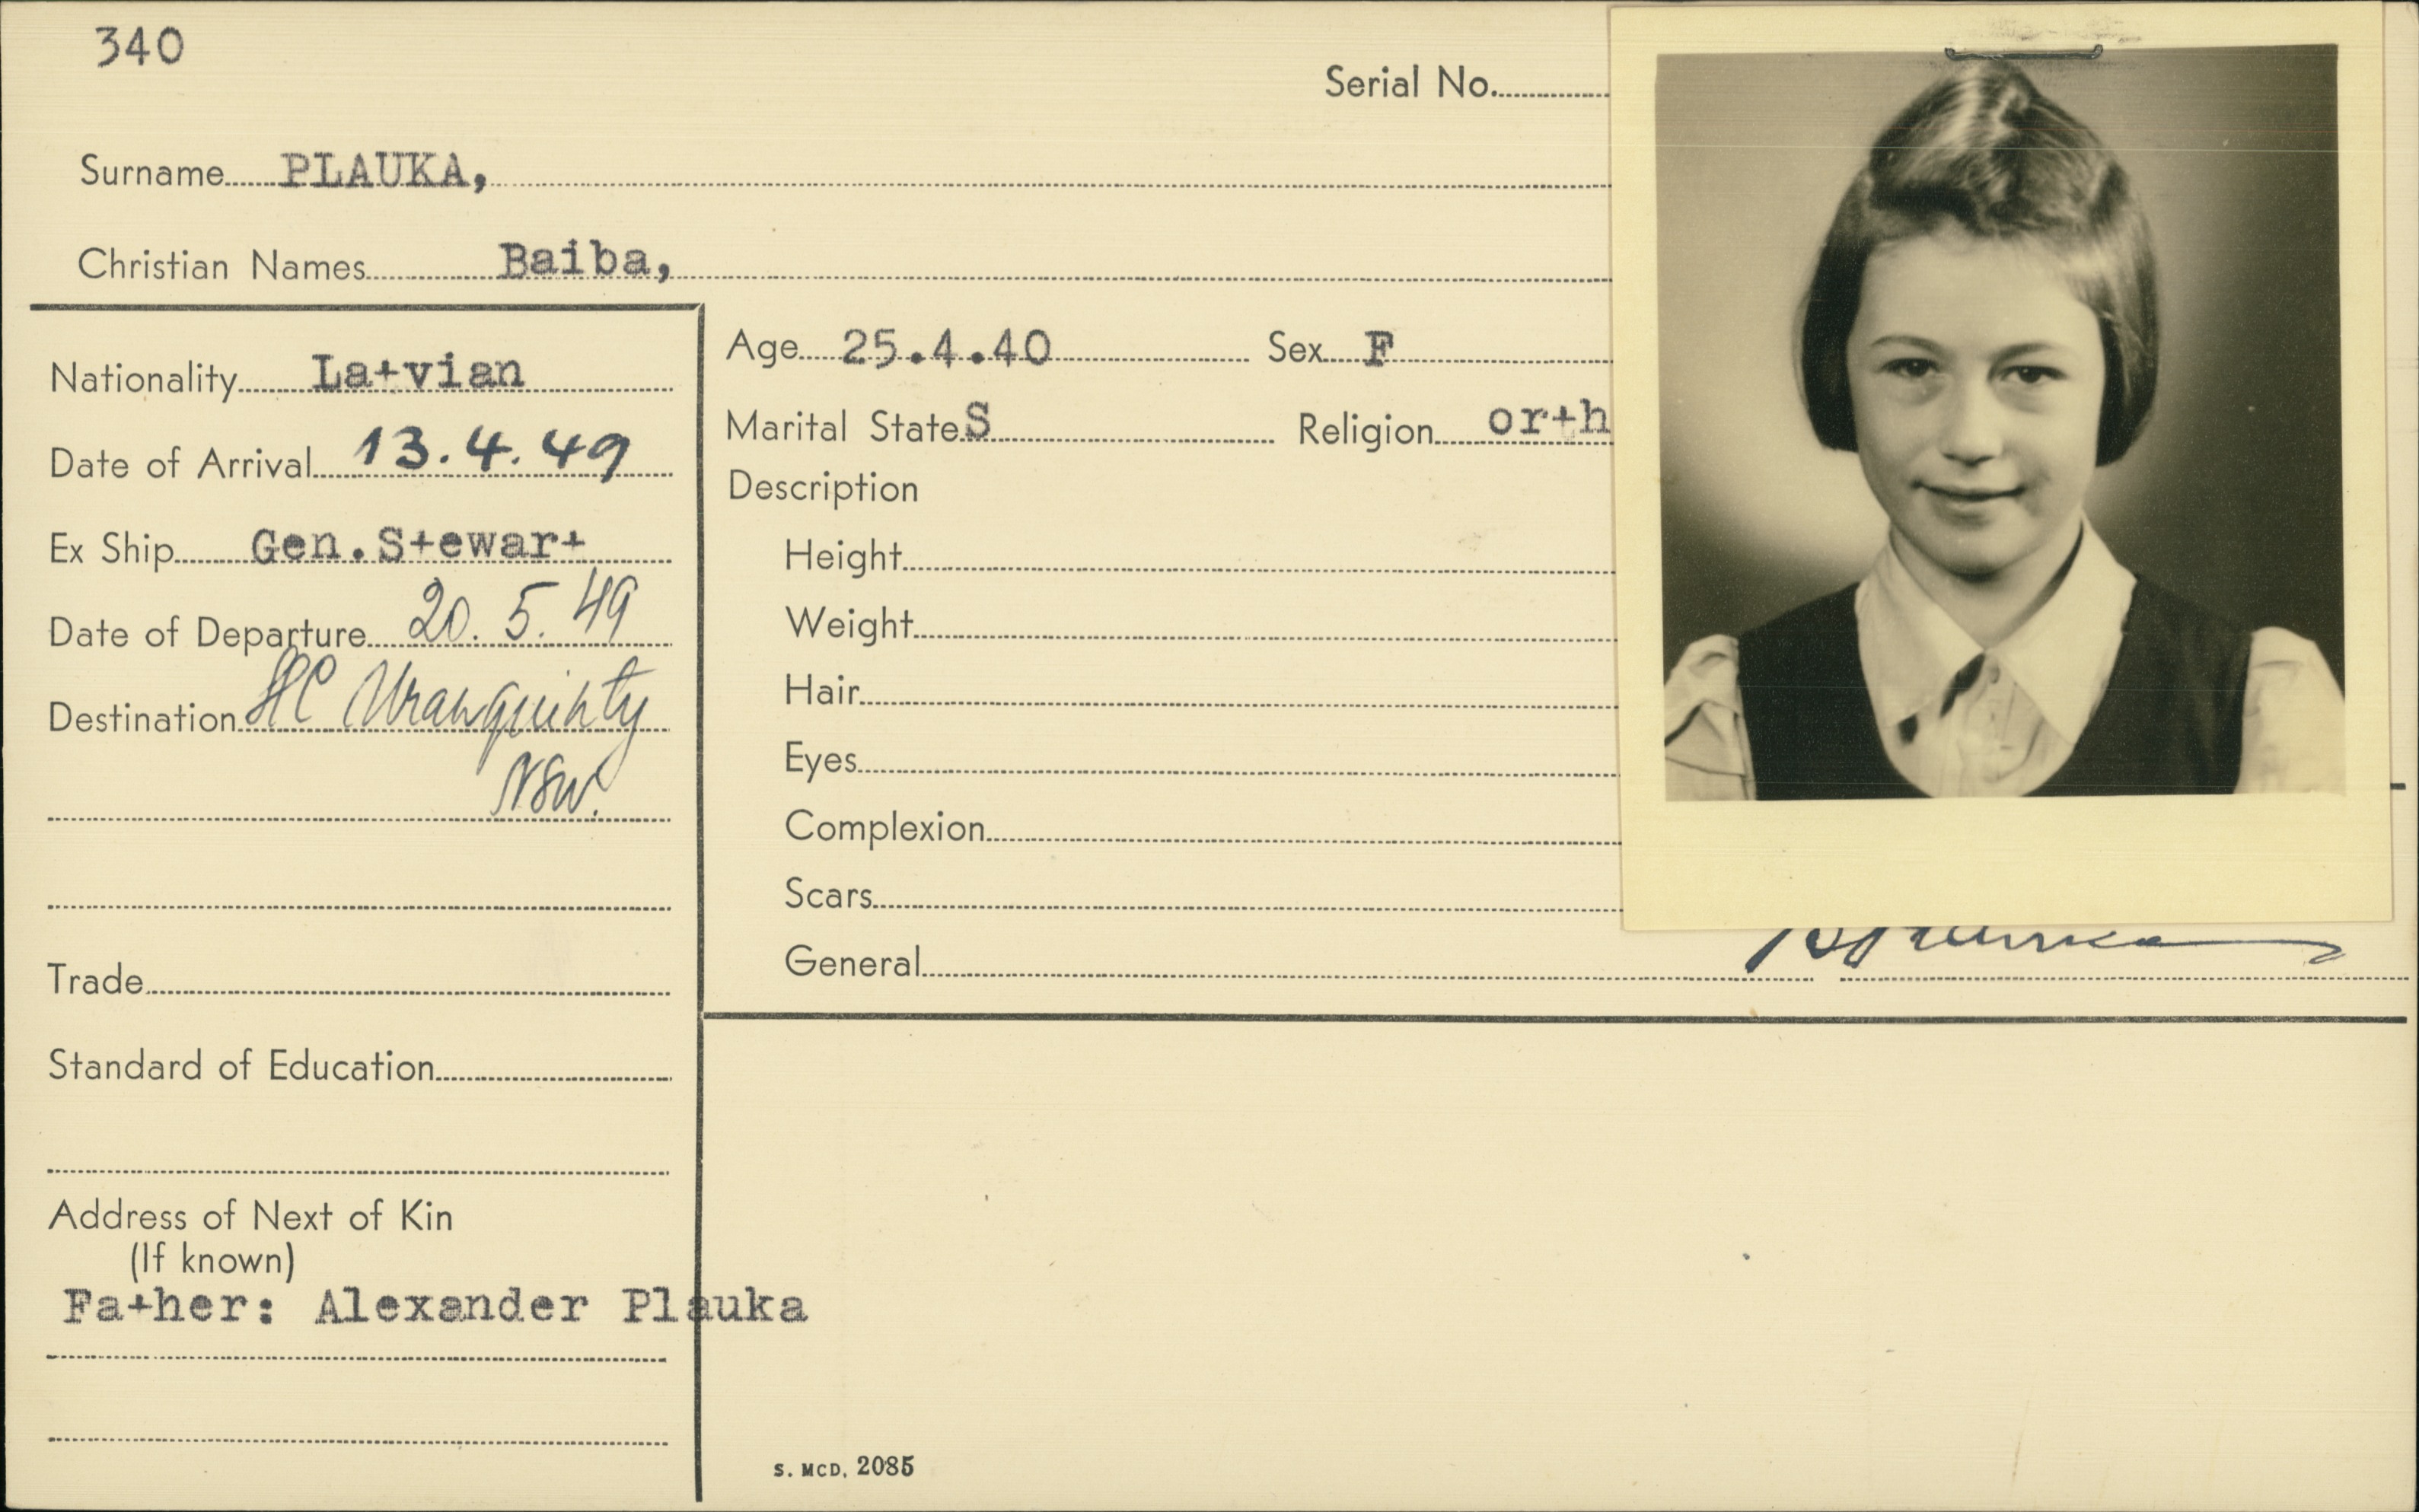 340
Serial No.
Surname PLAUKA,
Christian Names Baiba,
Nationality Latvian
Date of Arrival 13.4.49
Ex Ship Gen. Stewart
Date of Departure 20.5.49
Destination HC Uranquinty
NSW.
Trade
Standard of Education
Address of Next of Kin
(If known)
Father: Alexander Plauka
Age 25.4.40 Sex F
Marital State S Religion orth
Description
Height
Weight
Hair
Eyes
Complexion
Scars
General
S. MCD. 2085